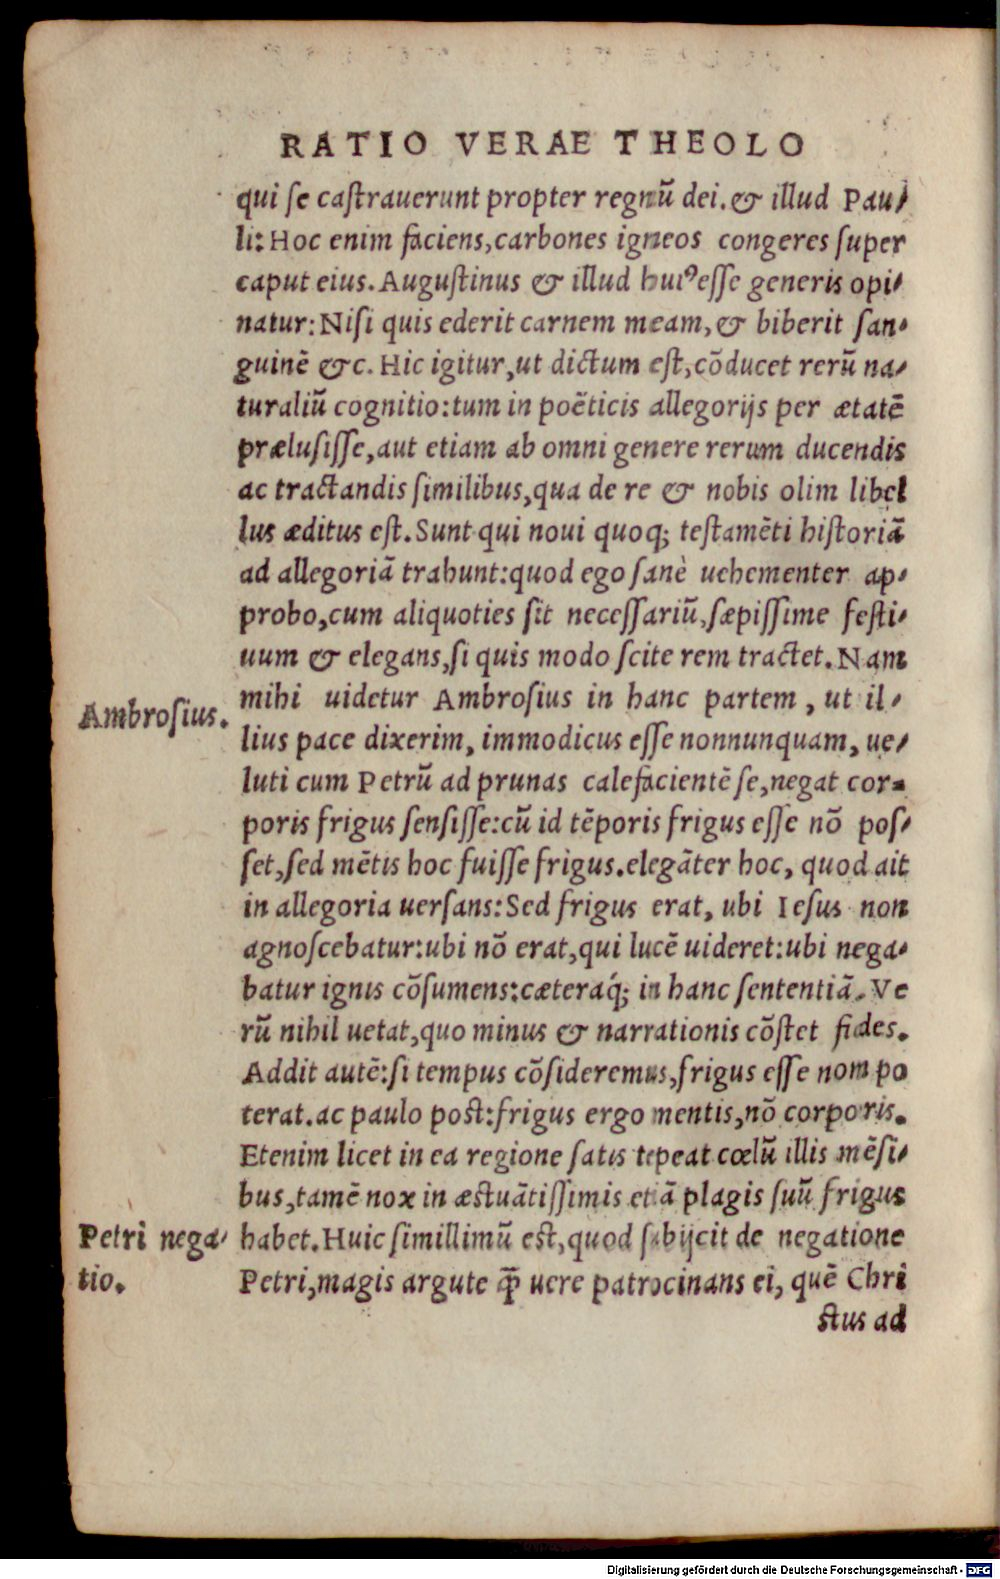 RATIO VERAE THEOLO
qui se castrauerunt propter regnũ dei. & illud Pau-
li: Hoc enim faciens, carbones igneos congeres super
caput eius. Augustinus & illud huiꝰ esse generis opi-
natur: Nisi quis ederit carnem meam, & biberit san-
guinẽ &c. Hic igitur, ut dictum est, cõducet rerũ na-
turaliũ cognitio: tum in poëticis allegorijs per ætatẽ
prælusisse, aut etiam ab omni genere rerum ducendis
ac tractandis similibus, qua de re & nobis olim libel
lus æditus est. Sunt qui noui quoq; testamẽti historiã
ad allegoriã trahunt: quod ego sanè uehementer ap-
probo, cum aliquoties sit necessariũ, sæpissime festi-
uum & elegans, si quis modo scite rem tractet. Nam
mihi uidetur Ambrosius in hanc partem, ut il-
Ambrosius.
lius pace dixerim, immodicus esse nonnunquam, ue-
luti cum Petrũ ad prunas calefacientẽ se, negat cor-
poris frigus sensisse: cũ id tẽporis frigus esse nõ pos-
set, sed mẽtis hoc fuisse frigus. elegãter hoc, quod ait
in allegoria uersans: Sed frigus erat, ubi Iesus non
agnoscebatur: ubi nõ erat, qui lucẽ uideret: ubi nega-
batur ignis cõsumens: cæteraq́; in hanc sententiã. Ve
rũ nihil uetat, quo minus & narrationis cõstet fides.
Addit autẽ: si tempus cõsideremus, frigus esse nom po
terat. ac paulo post: frigus ergo mentis, nõ corporis.
Etenim licet in ea regione satis tepeat cœlũ illis mẽsi-
bus, tamẽ nox in æstuãtissimis etiã plagis suũ frigus
habet. Huic simillimũ est, quod subijcit de negatione
Petri nega-
tio.
Petri, magis argute q̃ uere patrocinans ei, quẽ Chri
stus ad
Digitalisierung gefördert durch die Deutsche Forschungsgemeinschaft - DFG